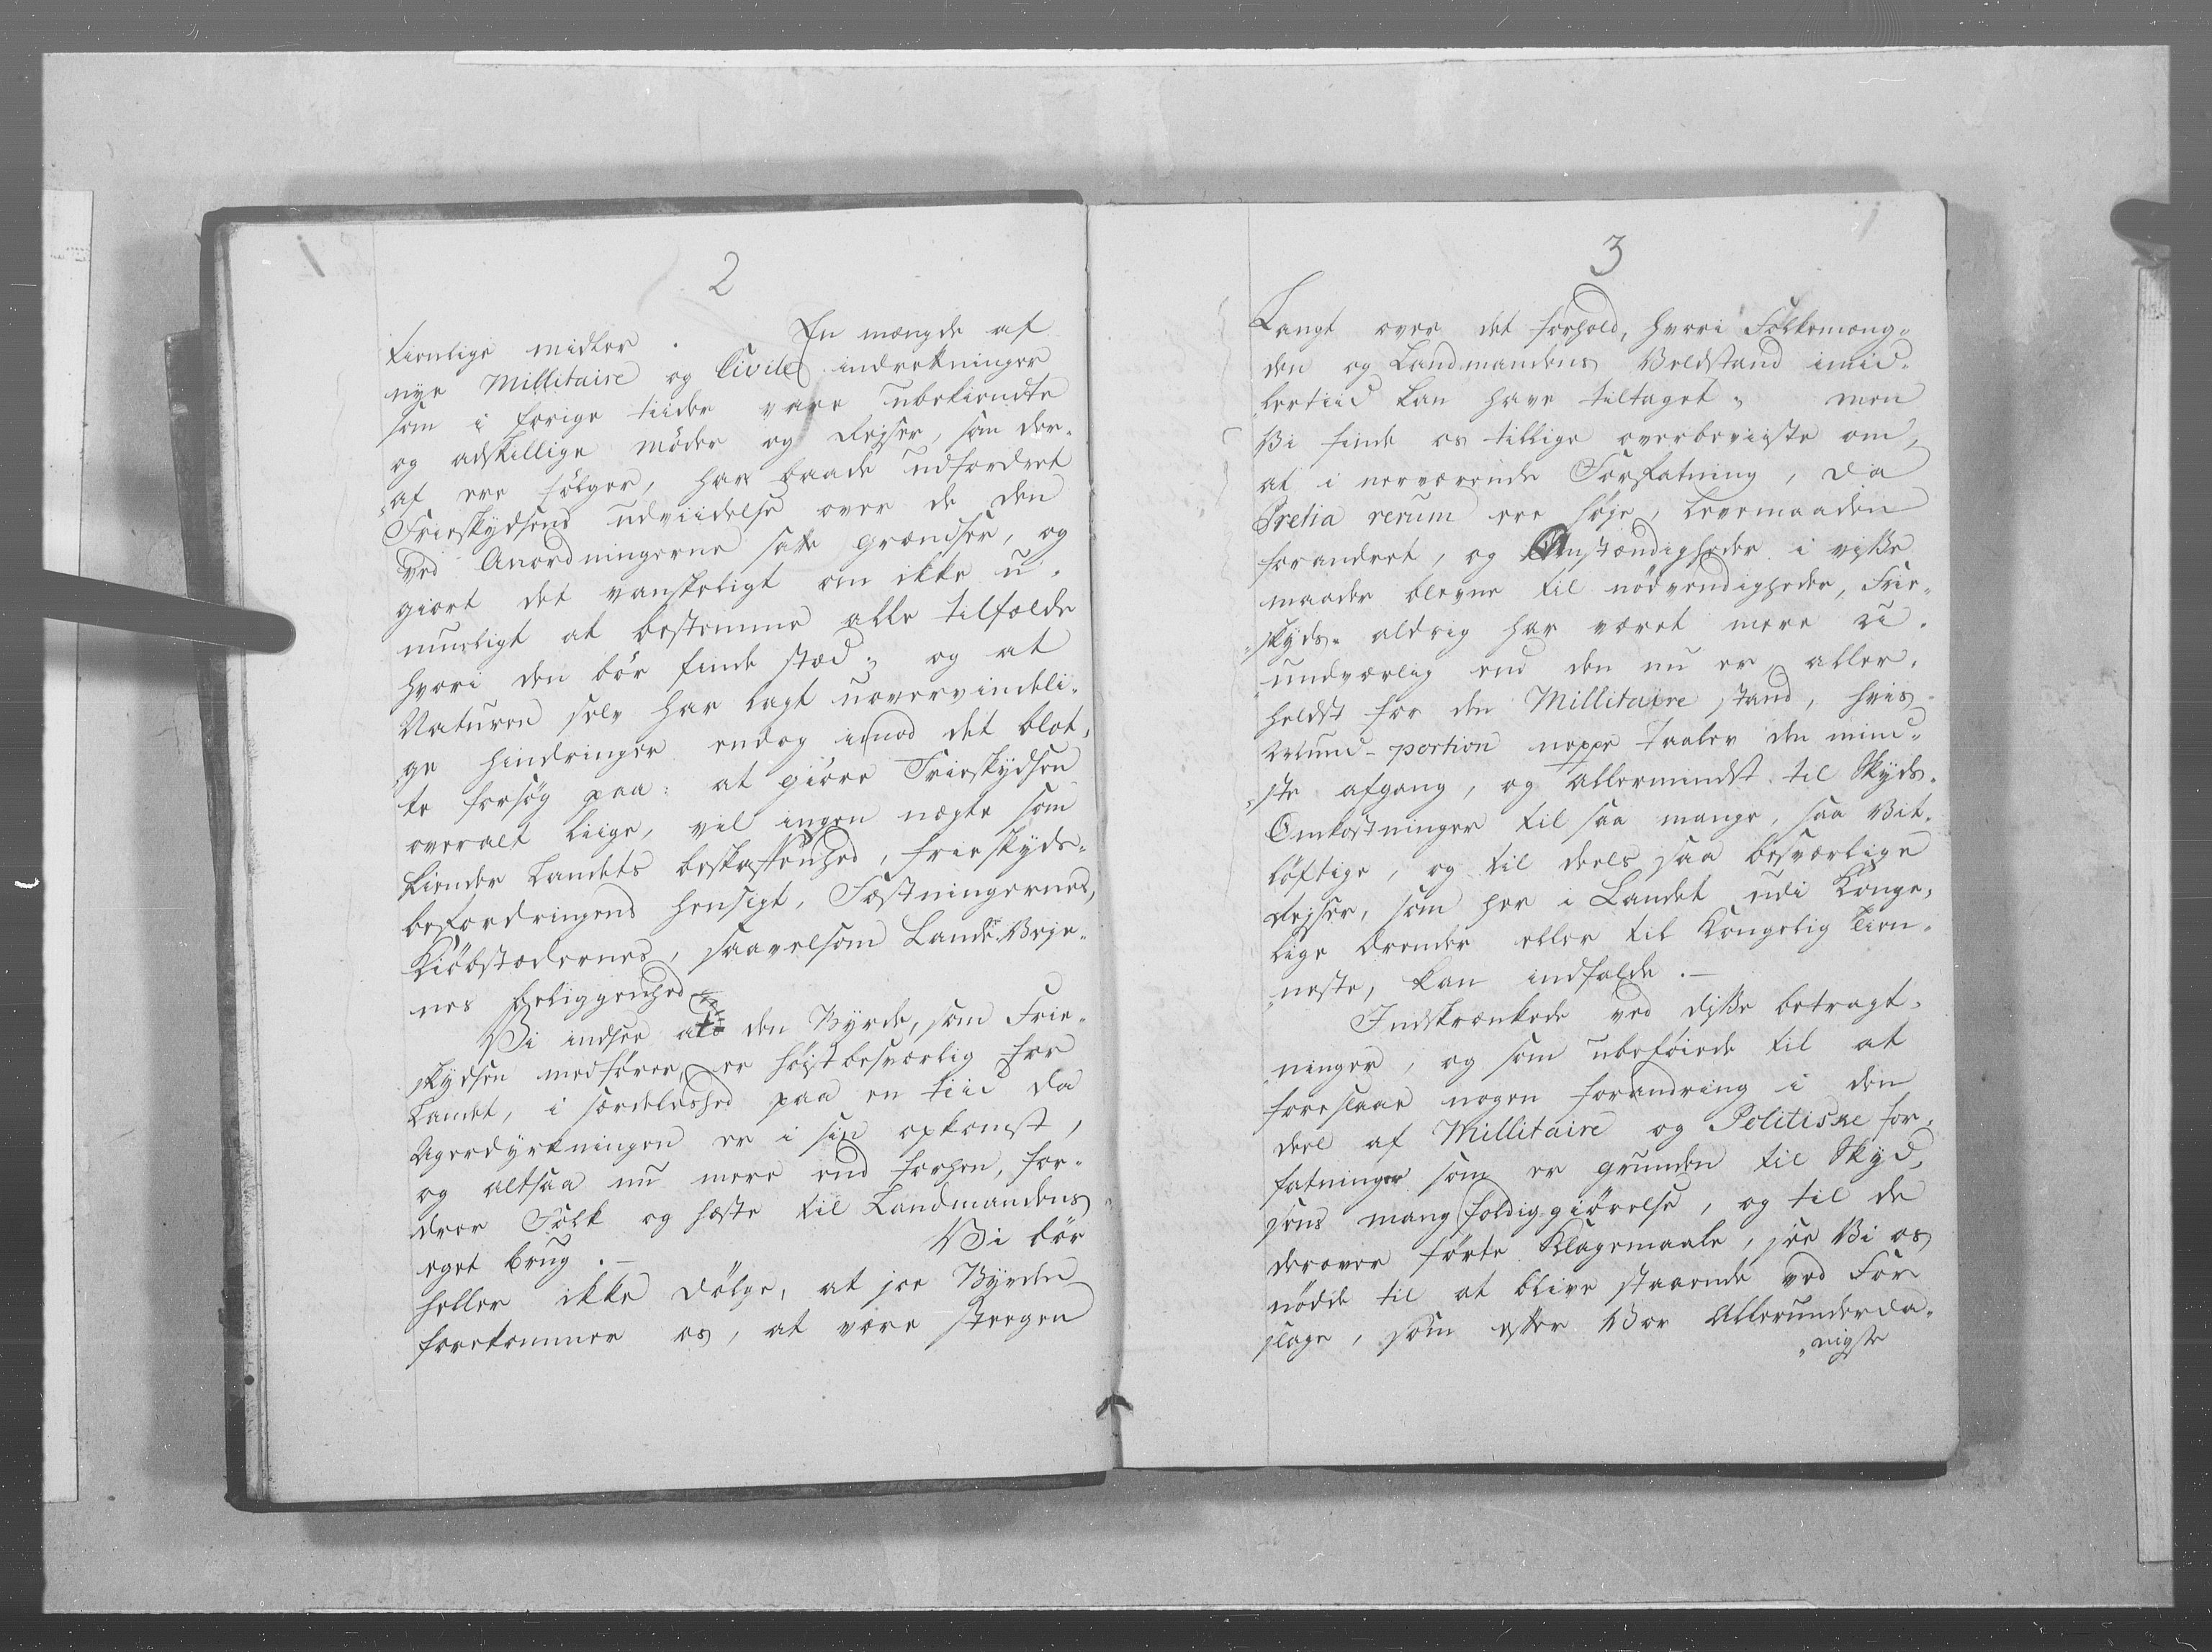 2
tienlige midler. En mængde af
nye Millitaire og Civile indretninger
som i forige tiider vare ubekiendte
og adskillige möder og Rejser, som der-
"af ere fölger, har baade udfordret
Frieskydsens udviidelse over de den
ved Anordningerne satte grændser, og
giort det vanskeligt om ikke u-
mueligt at bestemme alle tilfælde
hvori den bör finde stæd; og at
Naturen selv har lagt uovervindeli-
"ge hindringer endog imod det blot-
te forsög paa: at giöre Frieskydsen
overalt liige, vil ingen nægte som
kiender Landets beskaffenhed, frieskyds-
befordringens hensigt, Fæstningernes,
Kiöbstædernes, saavelsom Lande-Veje-
nes beliggenhed
Vi indsee at den Byrde, som Frie-
skydsen medförer, er höist besværlig for
Landet, i særdeleshed paa en tiid da
Agerdyrkningen er i sin opkomst,
og altsaa nu mere end forhen, for-
drer Folk og heste til Landmandens
eget brug.- Vi bör
heller ikke dölge, at jo Byrden
forekommer os, at være steegen
3
Langt over det forhold, hvori Folkemæng-
den og Landmandens Velstand imid-
lertiid kan have tiltaget; men
Vi finde os tillige overbeviiste om,
at i nerværende Forfatning, da
Pretia rerum ere höje, levemaaden
forandret, og Anstændigheder i visse
maader blevne til nödvendigheder, Frie-
"skyds- aldrig har været mere u-
undværlig end den nu er, aller-
heldst for den Millitaire stand, hvis
Mund-portion neppe taaler den mind-
"ste afgang, og allermindst til Skyds-
Omkostninger til saa mange, saa Vit-
löftige, og til deels saa besværlige
Rejser, som her i Landet udi Konge-
lige Ærender eller til Kongelig tien-
"neste, kan indfalde.-
Indskrænkede ved disse betragt-
ninger, og som ubeföiede til at
foreslaae nogen forandring i den
deel af Millitaire og Politiske for-
fatninger som er grunden til Skyd-
sens mangfoldiggiörelse, og til de
derover förte Klagemaale, see Vi os
nödde til at blive staaende ved For
slage, som efter Vor Allerunderda-
"nigste